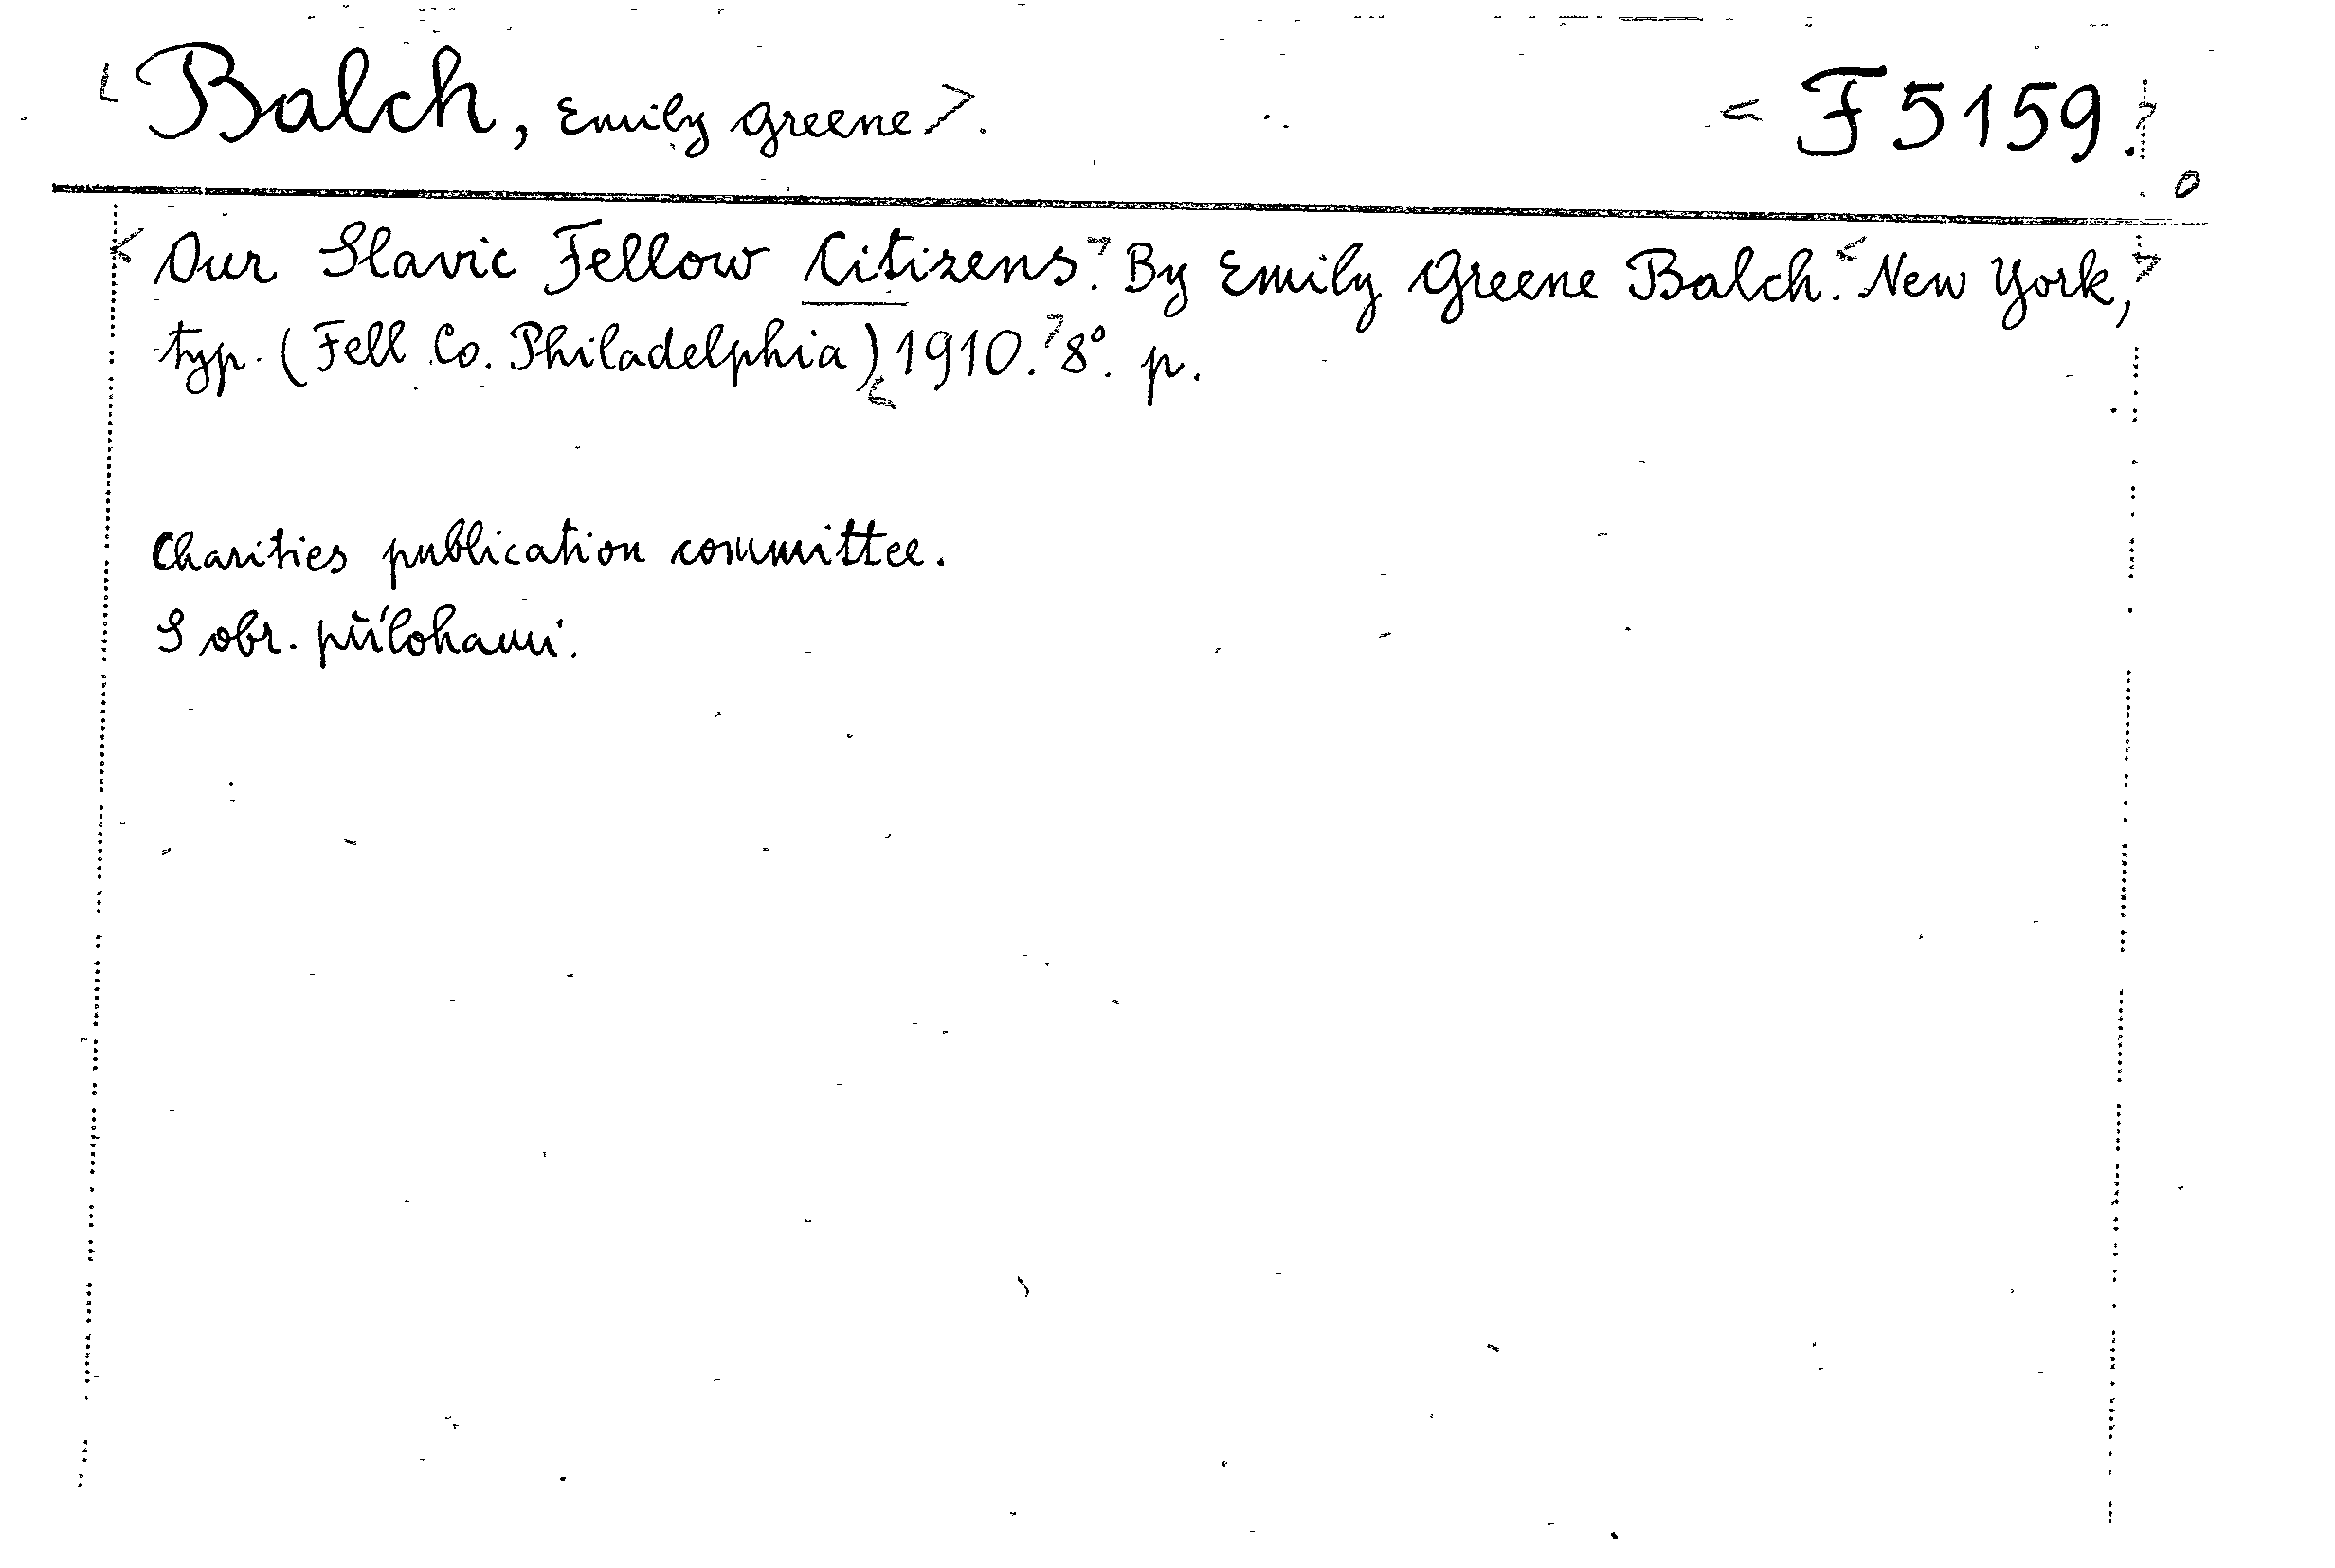 <Balch, Emily Greene>. <F 5159.>
o
<Our Slavic Fellow Citizens.> By Emily Greene Balch. <New York,>
typ. (Fell Co. Philadelphia) <1910.> 8°. p.
Charities publication committee.
S obr. přílohami.